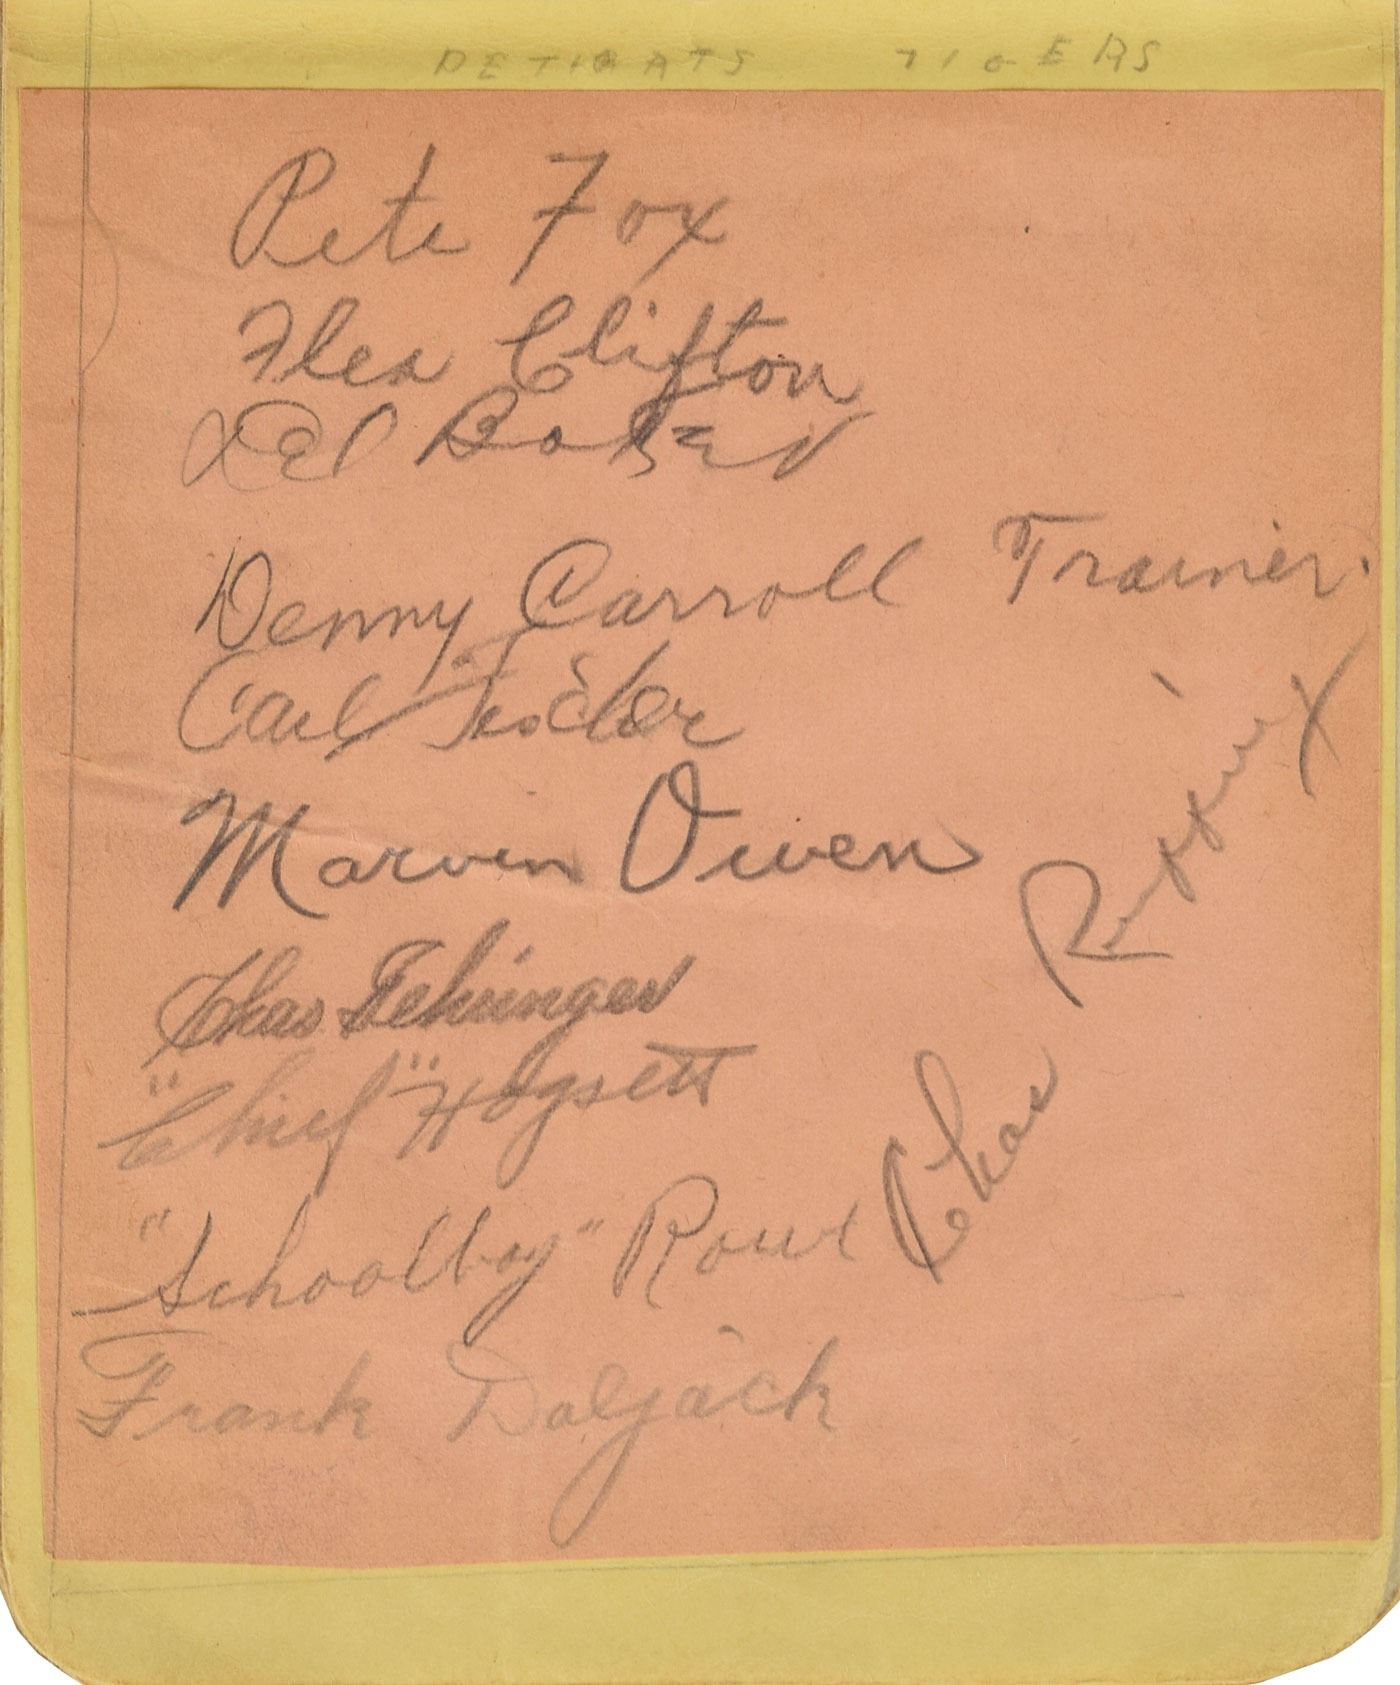 DETIOATS TIGERS
Pete Fox
Flea Clifton
Del Baker
Denny Carroll Trainer.
Carl Fischer
Marvin Owen
Chas Gehringer
"Chief" Hogsett
"Schoolboy" Rowe
Frank Doljack
Chas